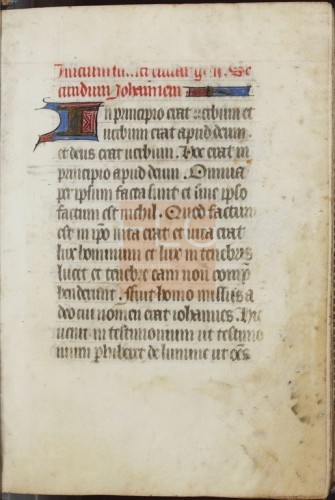 Inicium sancti euangelii. Se
cundum Johannem
In principio erat uerbum et
uerbum erat apud deum.
et deus erat uerbum. Hoc erat in
principio apud deum. Omnia
per ipsum facta sunt et sine ipso
factum est nichil. Quod factum
est in ipo uita erat et uita erat
lux hominum et lux in tenebris
lucet et tenebre eam non comp
henderunt. Fuit homo missus a
deo cui nomen erat iohannes. Hic
uenit in testimonium ut testimo
nium phiberet de lumine ut oes